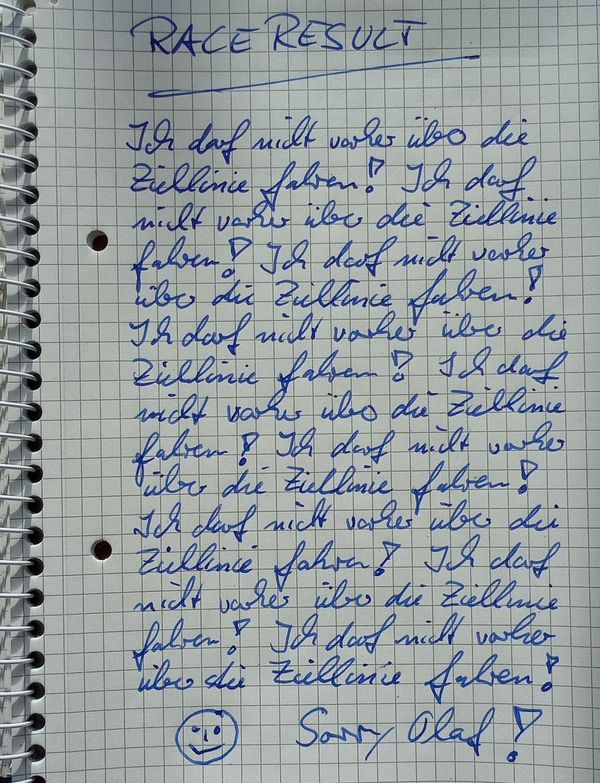 RACE RESULT
Ich darf nicht vorher über die
Ziellinie fahren! Ich darf
nicht vorher über die Ziellinie
fahren! Ich darf nicht vorher
über die Ziellinie fahren!
Ich darf nicht vorher über die
Ziellinie fahren! Ich darf
nicht vorher über die Ziellinie
fahren! Ich darf nicht vorher
über die Ziellinie fahren!
Ich darf nicht vorher über die
Ziellinie fahren! Ich darf
nicht vorher über die Ziellinie
fahren! Ich darf nicht vorher
über die Ziellinie fahren!
Sorry Olaf!